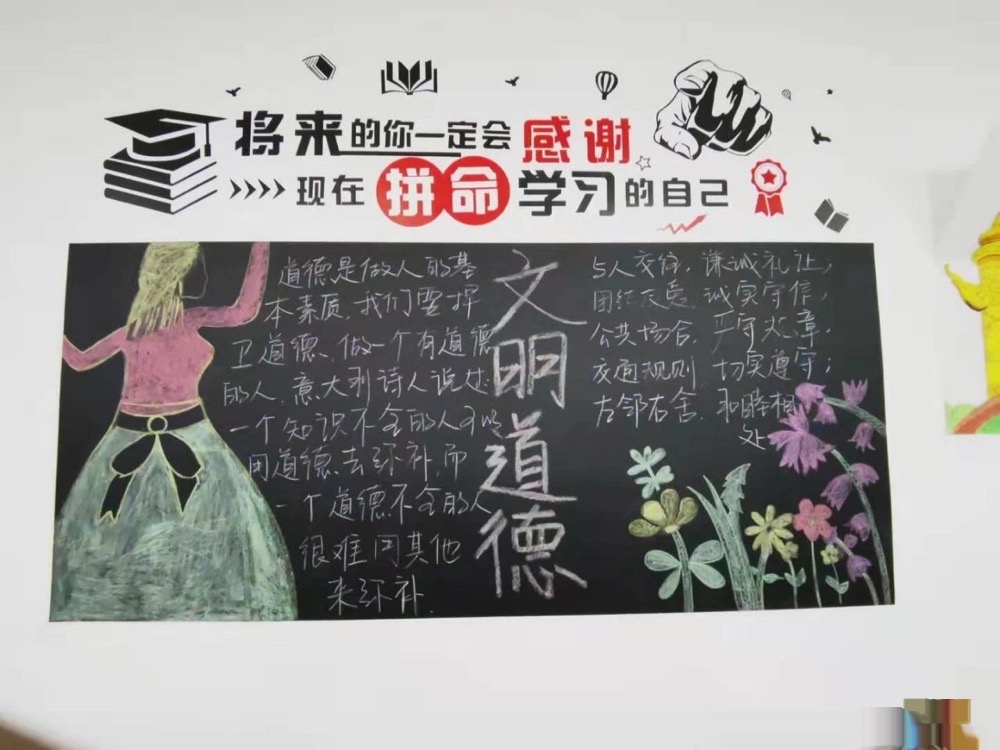 将来的你一定会感谢
现在拼命学习的自己
道德是做人的基
本素质，我们要捍
卫道德、做一个有道德
的人，意大利诗人说过
一个知识不全的人可以
用道德去弥补，而
一个道德不全的人
很难用其他
来弥补．
文明道德
与人交往，谦诚礼让；
团结友爱，诚实守信，
公共场合，严守光章，
交通规则 切实遵守；
左邻右舍，和睦相
处